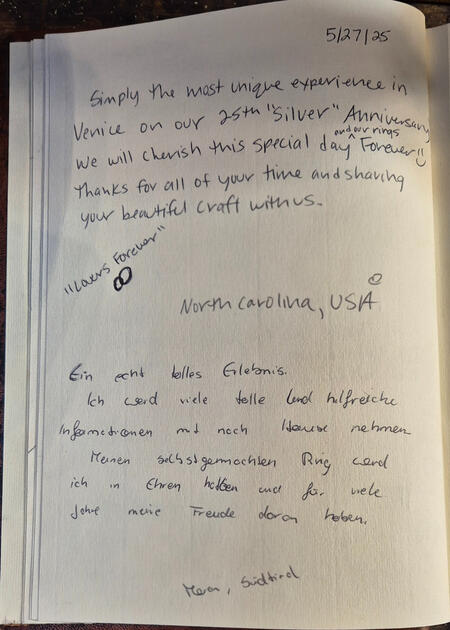 5/27/25
Simply the most unique experience in
Venice on our 25th "Silver" Anniversary
We will cherish this special day and our rings Forever!!
Thanks for all of your time and sharing
your beautiful craft with us.
"Lovers Forever"
North Carolina, USA
Ein echt tolles Erlebnis.
Ich werd viele tolle und hilfreiche
Informationen mit nach Hause nehmen
Meinen selbstgemachten Ring werd
ich in Ehren halten und für viele
Jahre meine Freude daran haben.
Meran, Südtirol